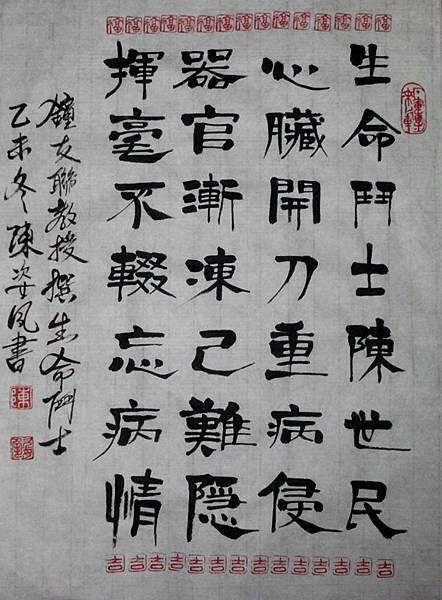 生命鬥士陳世民
心臟開刀重病侵
器官漸凍己難隱
揮毫不輟忘病情
鐘友聯教授撰生命鬥士
乙未冬陳姿凤書